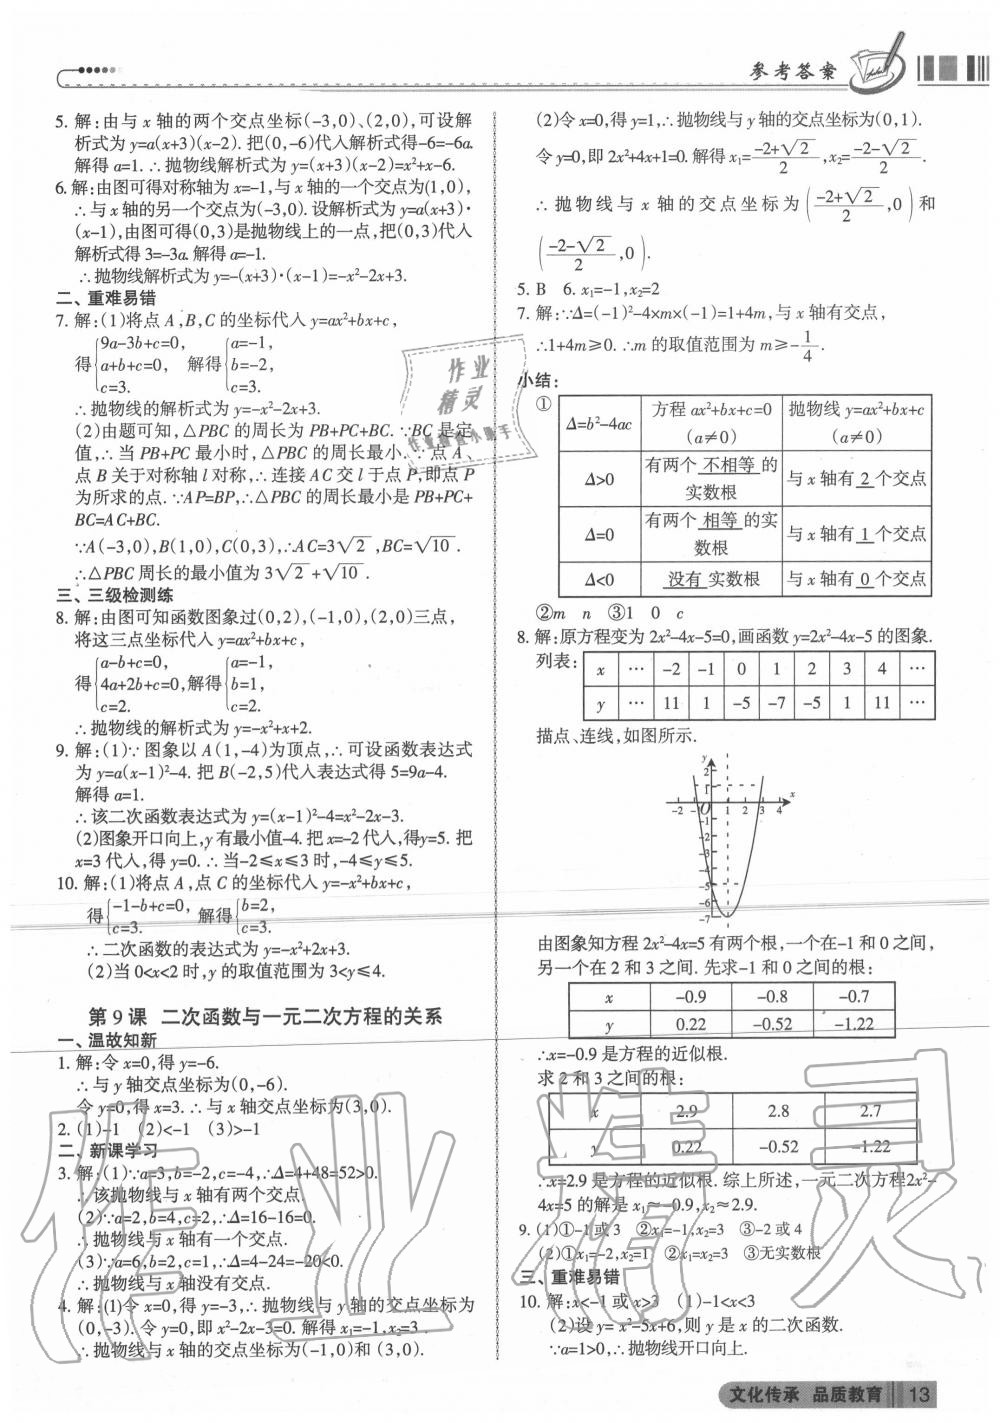 参考答案
5. 解:由与 x 轴的两个交点坐标(-3,0)、(2,0),可设解
析式为 y=a(x+3)(x-2). 把(0,-6)代入解析式得-6=-6a.
解得 a=1. ∴抛物线解析式为 y=(x+3)(x-2)=x²+x-6.
6. 解:由图可得对称轴为 x=-1,与 x 轴的一个交点为(1,0),
∴与 x 轴的另一个交点为(-3,0). 设解析式为 y=a(x+3)·
(x-1),由图可得(0,3)是抛物线上的一点,把(0,3)代入
解析式得 3=-3a. 解得 a=-1.
∴抛物线解析式为 y=-(x+3)·(x-1)=-x²-2x+3.
二、重难易错
7. 解:(1)将点 A,B,C 的坐标代入 y=ax²+bx+c,
得{9a-3b+c=0, a+b+c=0, c=3. 解得{a=-1, b=-2, c=3.
∴抛物线的解析式为 y=-x²-2x+3.
(2)由题可知,△PBC 的周长为 PB+PC+BC. ∵BC 是定
值,∴当 PB+PC 最小时,△PBC 的周长最小. ∵点 A、
点 B 关于对称轴 l 对称,∴连接 AC 交 l 于点 P,即点 P
为所求的点. ∵AP=BP,∴△PBC 的周长最小是 PB+PC+
BC=AC+BC.
∵A(-3,0),B(1,0),C(0,3),∴AC=3√2,BC=√10.
∴△PBC 周长的最小值为 3√2+√10.
三、三级检测练
8. 解:由图可知函数图象过(0,2),(-1,0),(2,0)三点,
将这三点坐标代入 y=ax²+bx+c,
得{a-b+c=0, 4a+2b+c=0, c=2. 解得{a=-1, b=1, c=2.
∴抛物线的解析式为 y=-x²+x+2.
9. 解:(1)∵图象以 A(1,-4)为顶点,∴可设函数表达式
为 y=a(x-1)²-4. 把 B(-2,5)代入表达式得 5=9a-4.
解得 a=1.
∴该二次函数表达式为 y=(x-1)²-4=x²-2x-3.
(2)图象开口向上,y 有最小值-4. 把 x=-2 代入,得y=5. 把
x=3 代入,得 y=0. ∴当-2≤x≤3 时,-4≤y≤5.
10. 解:(1)将点 A,点 C 的坐标代入 y=-x²+bx+c,
得{-1-b+c=0, c=3. 解得{b=2, c=3.
∴二次函数的表达式为 y=-x²+2x+3.
(2)当 0<x<2 时,y 的取值范围为 3<y≤4.
第 9 课 二次函数与一元二次方程的关系
一、温故知新
1. 解:令 x=0,得 y=-6.
∴与 y 轴交点坐标为(0,-6).
令 y=0,得 x=3. ∴与 x 轴交点坐标为(3,0).
2. (1)-1 (2)<-1 (3)>-1
二、新课学习
3. 解:(1)∵a=3,b=-2,c=-4,∴Δ=4+48=52>0.
∴该抛物线与 x 轴有两个交点.
(2)∵a=2,b=4,c=2,∴Δ=16-16=0.
∴抛物线与 x 轴有一个交点.
(3)∵a=6,b=2,c=1,∴Δ=4-24=-20<0.
∴抛物线与 x 轴没有交点.
4. 解:(1)令 x=0,得 y=-3,∴抛物线与 y 轴的交点坐标为
(0,-3). 令 y=0,即 x²-2x-3=0. 解得 x₁=-1,x₂=3.
∴抛物线与 x 轴的交点坐标为(-1,0)和 (3,0).
(2)令 x=0,得 y=1,∴抛物线与 y 轴的交点坐标为(0,1).
令 y=0,即 2x²+4x+1=0. 解得 x₁=(-2+√2)/2,x₂=(-2-√2)/2.
∴抛物线与 x 轴的交点坐标为((-2+√2)/2,0)和
((-2-√2)/2,0).
5. B 6. x₁=-1,x₂=2
7. 解:∵Δ=(-1)²-4×m×(-1)=1+4m,与 x 轴有交点,
∴1+4m≥0. ∴m 的取值范围为 m≥-1/4.
小结:
① Δ=b²-4ac 方程 ax²+bx+c=0 (a≠0) 抛物线 y=ax²+bx+c (a≠0)
Δ>0 有两个 不相等 的实数根 与 x 轴有 2 个交点
Δ=0 有两个 相等 的实数根 与 x 轴有 1 个交点
Δ<0 没有 实数根 与 x 轴有 0 个交点
②m n ③1 0 c
8. 解:原方程变为 2x²-4x-5=0,画函数 y=2x²-4x-5 的图象.
列表: x … -2 -1 0 1 2 3 4 …
y … 11 1 -5 -7 -5 1 11 …
描点、连线,如图所示.
y
2
1
-2 -1 O 1 2 3 4 x
-1
-2
-3
-4
-5
-6
-7
由图象知方程 2x²-4x=5 有两个根,一个在-1 和 0 之间,
另一个在 2 和 3 之间. 先求-1 和 0 之间的根:
x -0.9 -0.8 -0.7
y 0.22 -0.52 -1.22
∴x=-0.9 是方程的近似根.
求 2 和 3 之间的根:
x 2.9 2.8 2.7
y 0.22 -0.52 -1.22
∴x=2.9 是方程的近似根. 综上所述,一元二次方程2x²-
4x=5 的解是 x₁≈-0.9,x₂≈2.9.
9. (1)①-1 或 3 ②x₁=-1,x₂=3 ③-2 或 4
(2)①x₁=-2,x₂=1 ②x₁=x₂=3 ③无实数根
三、重难易错
10. 解:x<-1 或 x>3 (1)-1<x<3
(2)设 y= x²-5x+6,则 y 是 x 的二次函数.
∵a=1>0,∴抛物线开口向上.
文化传承 品质教育 13
作业精灵
作业检查小助手
作业精灵